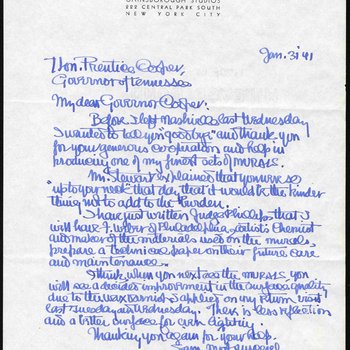 GAINSBOROUGH STUDIOS
222 CENTRAL PARK SOUTH
NEW YORK CITY
Jan. 31 '41
Hon. Prentice Cooper,
Governor of Tennessee
My dear Governor Cooper.
Before I left Nashville last Wednesday
I wanted to tell you "goodbye" and thank you
for your generous cooperation and help in
producing one of my finest sets of murals.
Mr. Stewart explained that you were so
"up to your neck" that day, that it would be the kinder
thing not to add to the burden.
I have just written Judge Phillips that I
will have F. Weber of Philadelphia, artists chemist
and maker of the materials used on the murals,
prepare a technical paper on their future care
and maintenance.
I think when you next see the murals you
will see a decided improvement in the surface quality
due to the wax varnish I applied on my return visit
last Tuesday and Wednesday. There is less reflection
and a better surface for each lighting.
Thanking you again for your help.
I am, most sincerely